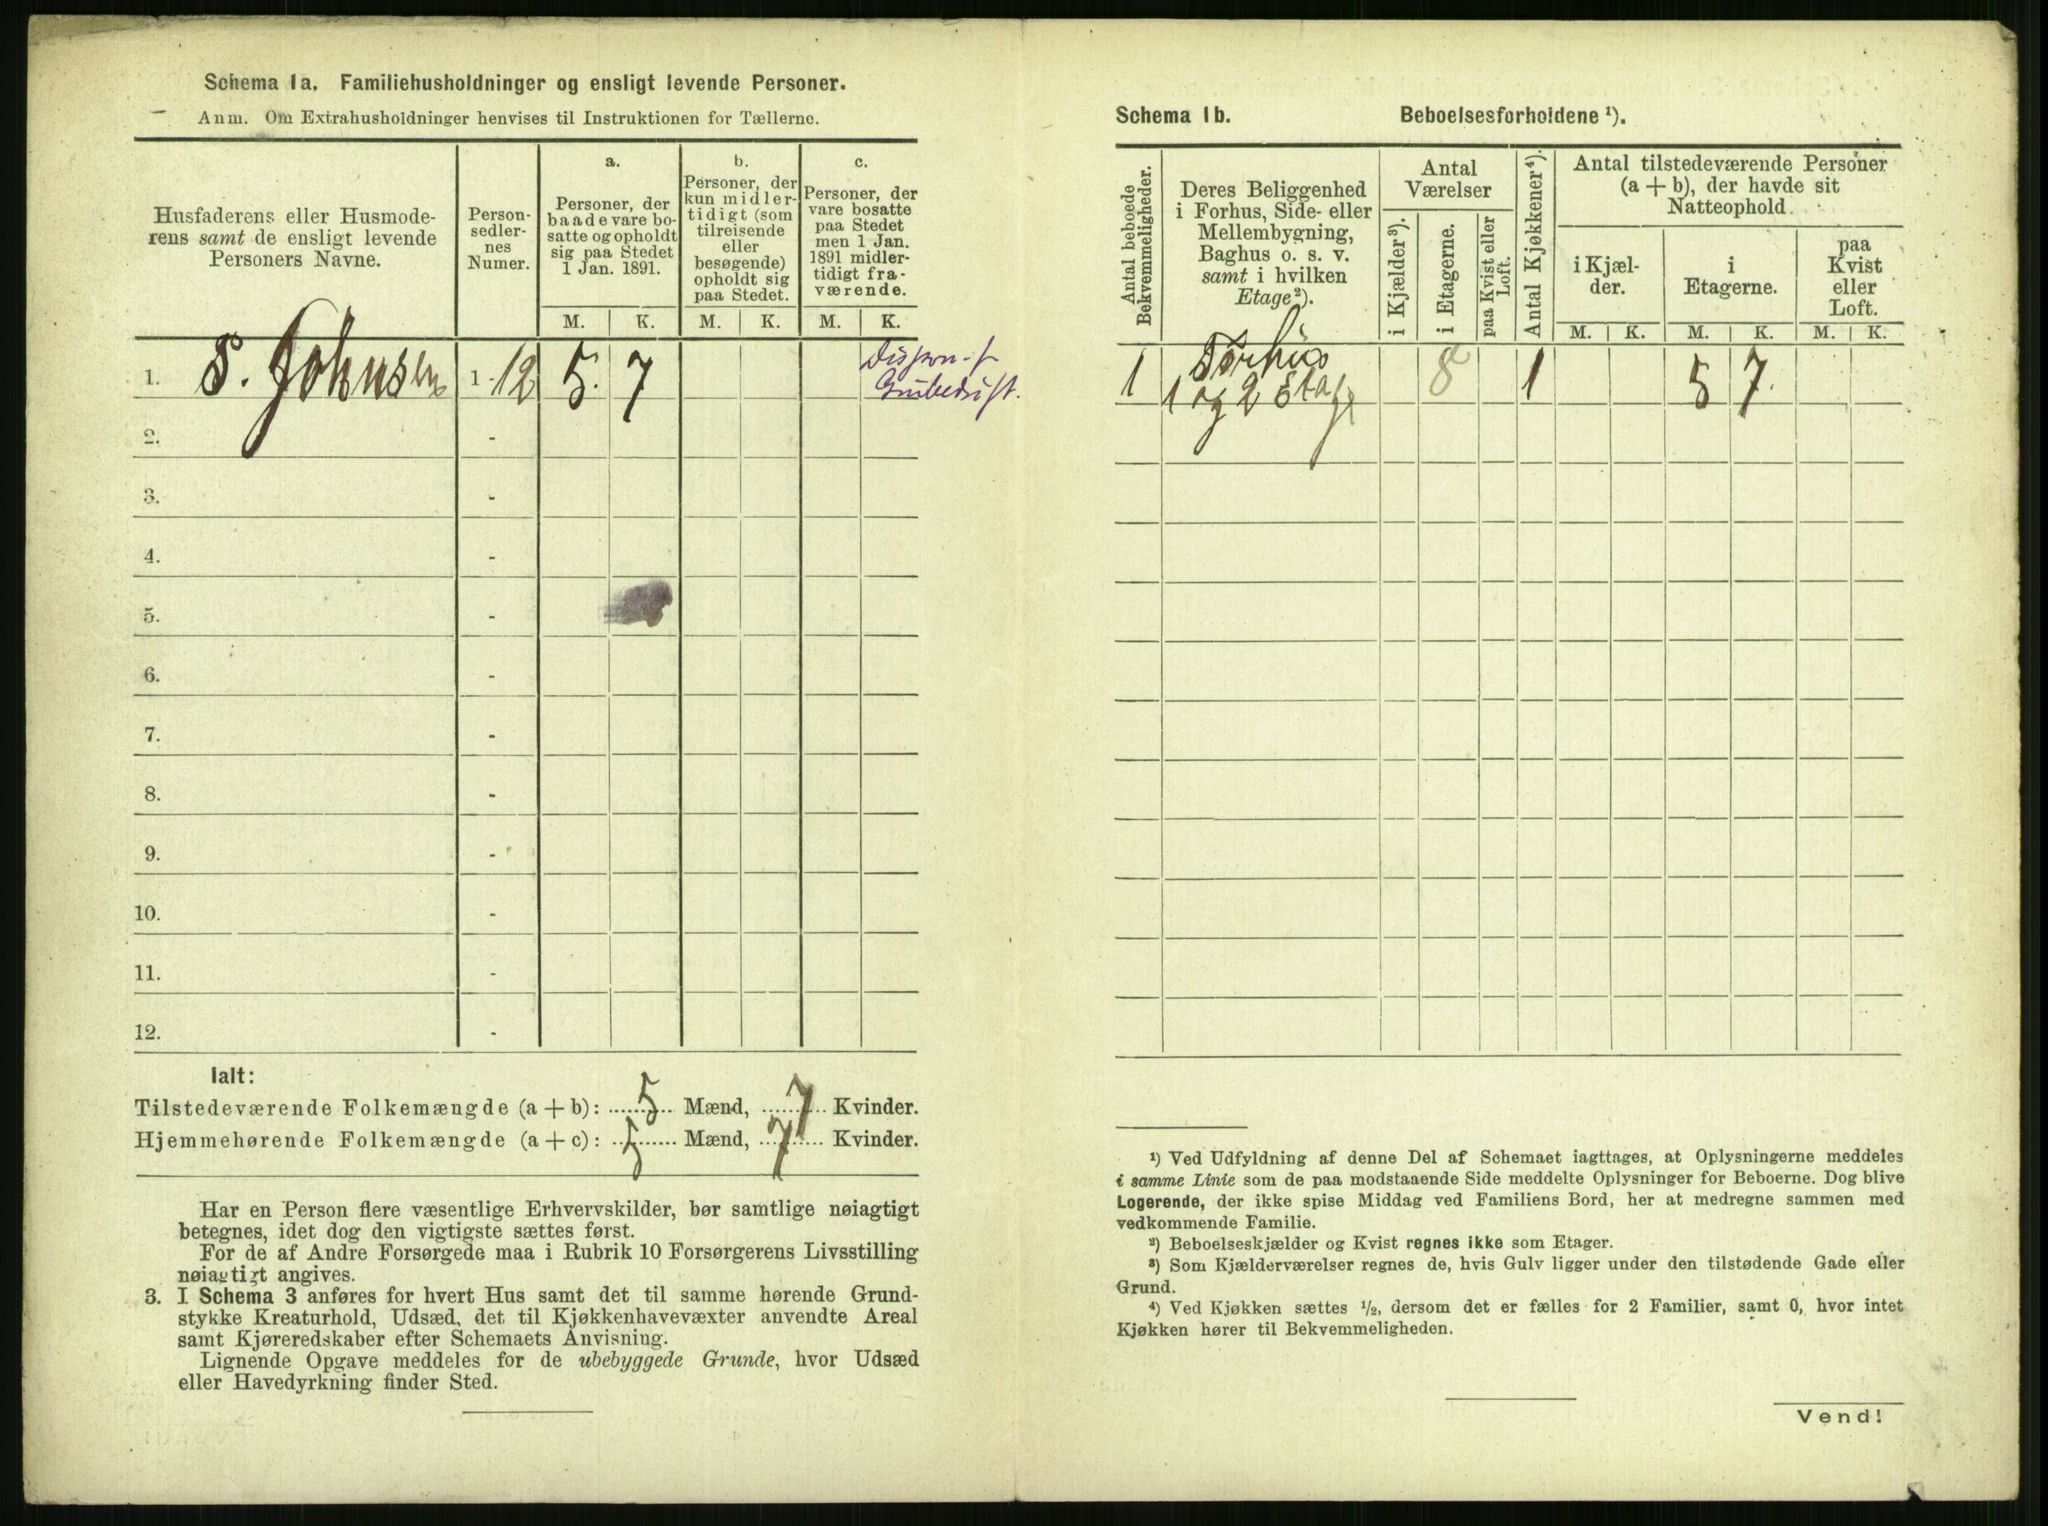 Schema 1a. Familiehusholdninger og ensligt levende Personer.
Anm. Om Extrahusholdninger henvises til Instruktionen for Tællerne.
Husfaderens eller Husmode-
rens samt de ensligt levende
Personers Navne.
Person-
sedler-
nes
Numer.
a.
Personer, der
baade vare bo-
satte og opholdt
sig paa Stedet
1 Jan. 1891.
b.
Personer, der
kun midler-
tidigt (som
tilreisende
eller
besøgende)
opholdt sig
paa Stedet.
c.
Personer, der
vare bosatte
paa Stedet
men 1 Jan.
1891 midler-
tidigt fra-
værende.
M. K. M. K. M. K.
1. S. Johnsen 1-12 5. 7
2. -
3. -
4. -
5. -
6. -
7. -
8. -
9. -
10. -
11. -
12. -
Ialt:
Tilstedeværende Folkemængde (a + b): 5 Mænd, 7 Kvinder.
Hjemmehørende Folkemængde (a + c): 5 Mænd, 7 Kvinder.
Har en Person flere væsentlige Erhvervskilder, bør samtlige nøiagtigt
betegnes, idet dog den vigtigste sættes først.
For de af Andre Forsørgede maa i Rubrik 10 Forsørgerens Livsstilling
nøiagtigt angives.
3. I Schema 3 anføres for hvert Hus samt det til samme hørende Grund-
stykke Kreaturhold, Udsæd, det til Kjøkkenhavevæxter anvendte Areal
samt Kjøreredskaber efter Schemaets Anvisning.
Lignende Opgave meddeles for de ubebyggede Grunde, hvor Udsæd
eller Havedyrkning finder Sted.
Schema 1b. Beboelsesforholdene ¹).
Antal beboede
Bekvemmeligheder.
Deres Beliggenhed
i Forhus, Side- eller
Mellembygning,
Baghus o. s. v.
samt i hvilken
Etage²).
Antal
Værelser
i Kjælder³).
i Etagerne.
paa Kvist eller
Loft.
Antal Kjøkkener⁴).
Antal tilstedeværende Personer
(a + b), der havde sit
Natteophold.
i Kjæl-
der.
i
Etagerne.
paa
Kvist
eller
Loft.
M. K. M. K. M. K.
1 Forhus 8 1 5 7.
1 og 2 Etage
¹) Ved Udfyldning af denne Del af Schemaet iagttages, at Oplysningerne meddeles
i samme Linie som de paa modstaaende Side meddelte Oplysninger for Beboerne. Dog blive
Logerende, der ikke spise Middag ved Familiens Bord, her at medregne sammen med
vedkommende Familie.
²) Beboelseskjælder og Kvist regnes ikke som Etager.
³) Som Kjælderværelser regnes de, hvis Gulv ligger under den tilstødende Gade eller
Grund.
⁴) Ved Kjøkken sættes ½, dersom det er fælles for 2 Familier, samt 0, hvor intet
Kjøkken hører til Bekvemmeligheden.
Vend!